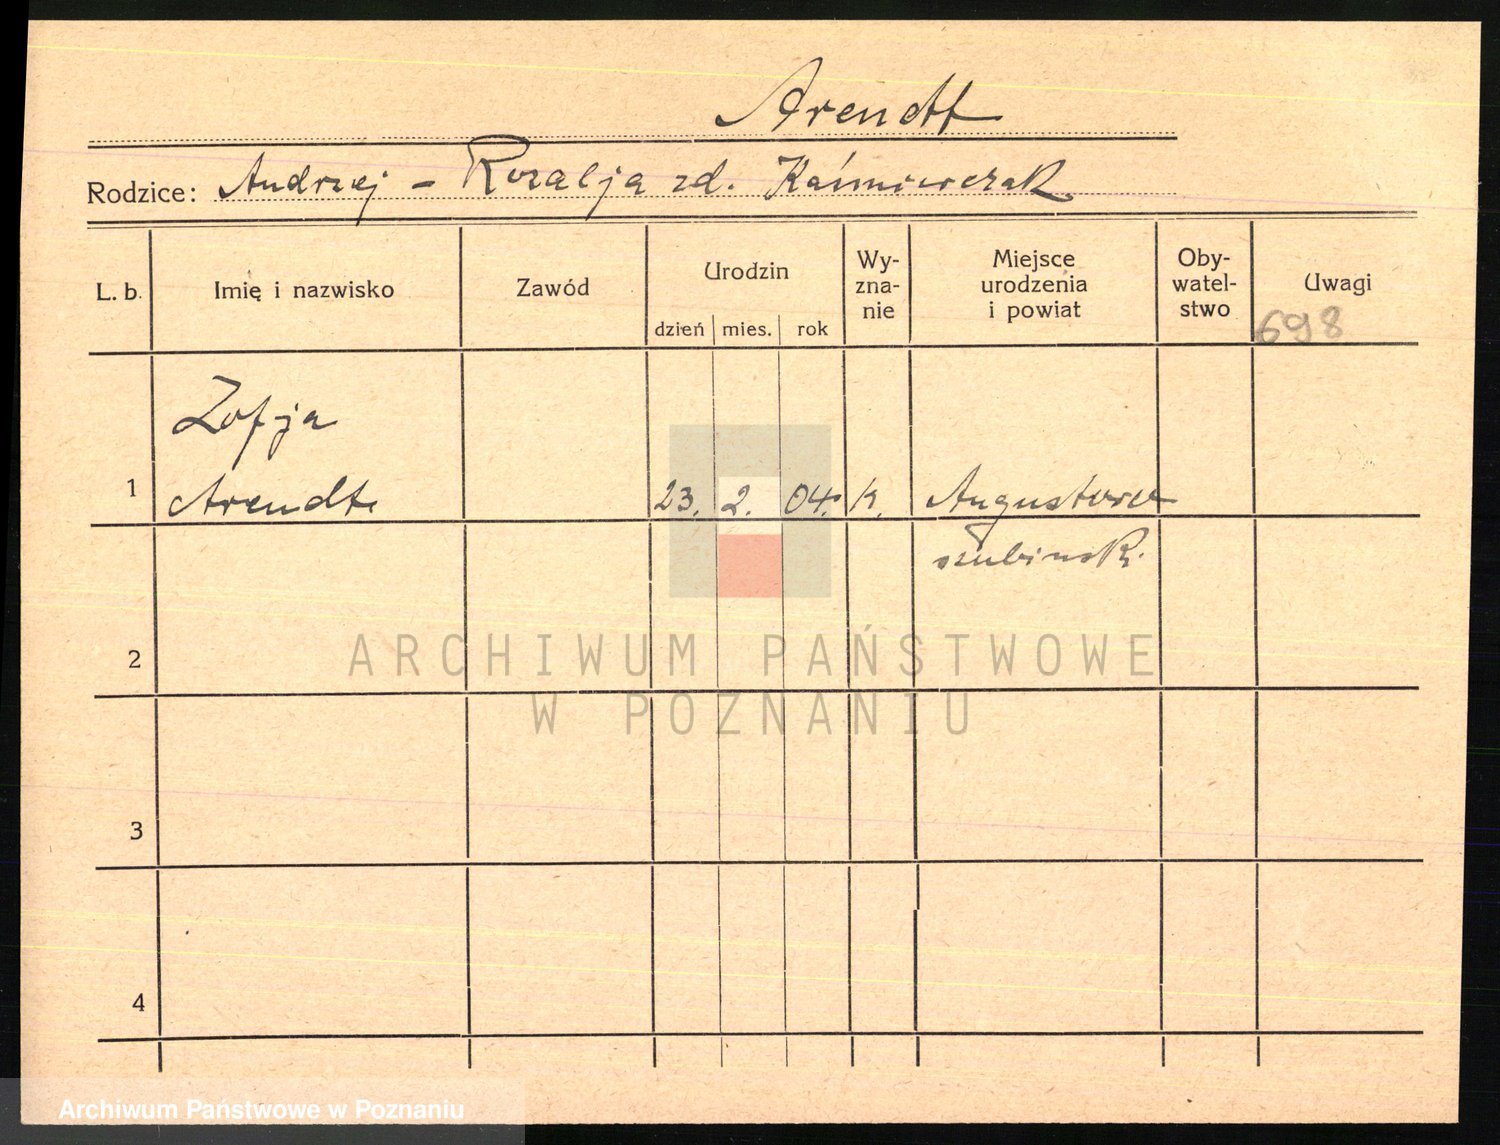 Arendt
Rodzice: Andrzej – Rozalja zd. Kaźmierczak
L. b.
Imię i nazwisko
Zawód
Urodzin
dzień mies. rok
Wy-
zna-
nie
Miejsce
urodzenia
i powiat
Oby-
watel-
stwo
Uwagi
698
Zofja
1 Arendt 23. 2. 04. k. Augustowo
szubinsk.
ARCHIWUM PAŃSTWOWE
2
W POZNANIU
3
4
Archiwum Państwowe w Poznaniu